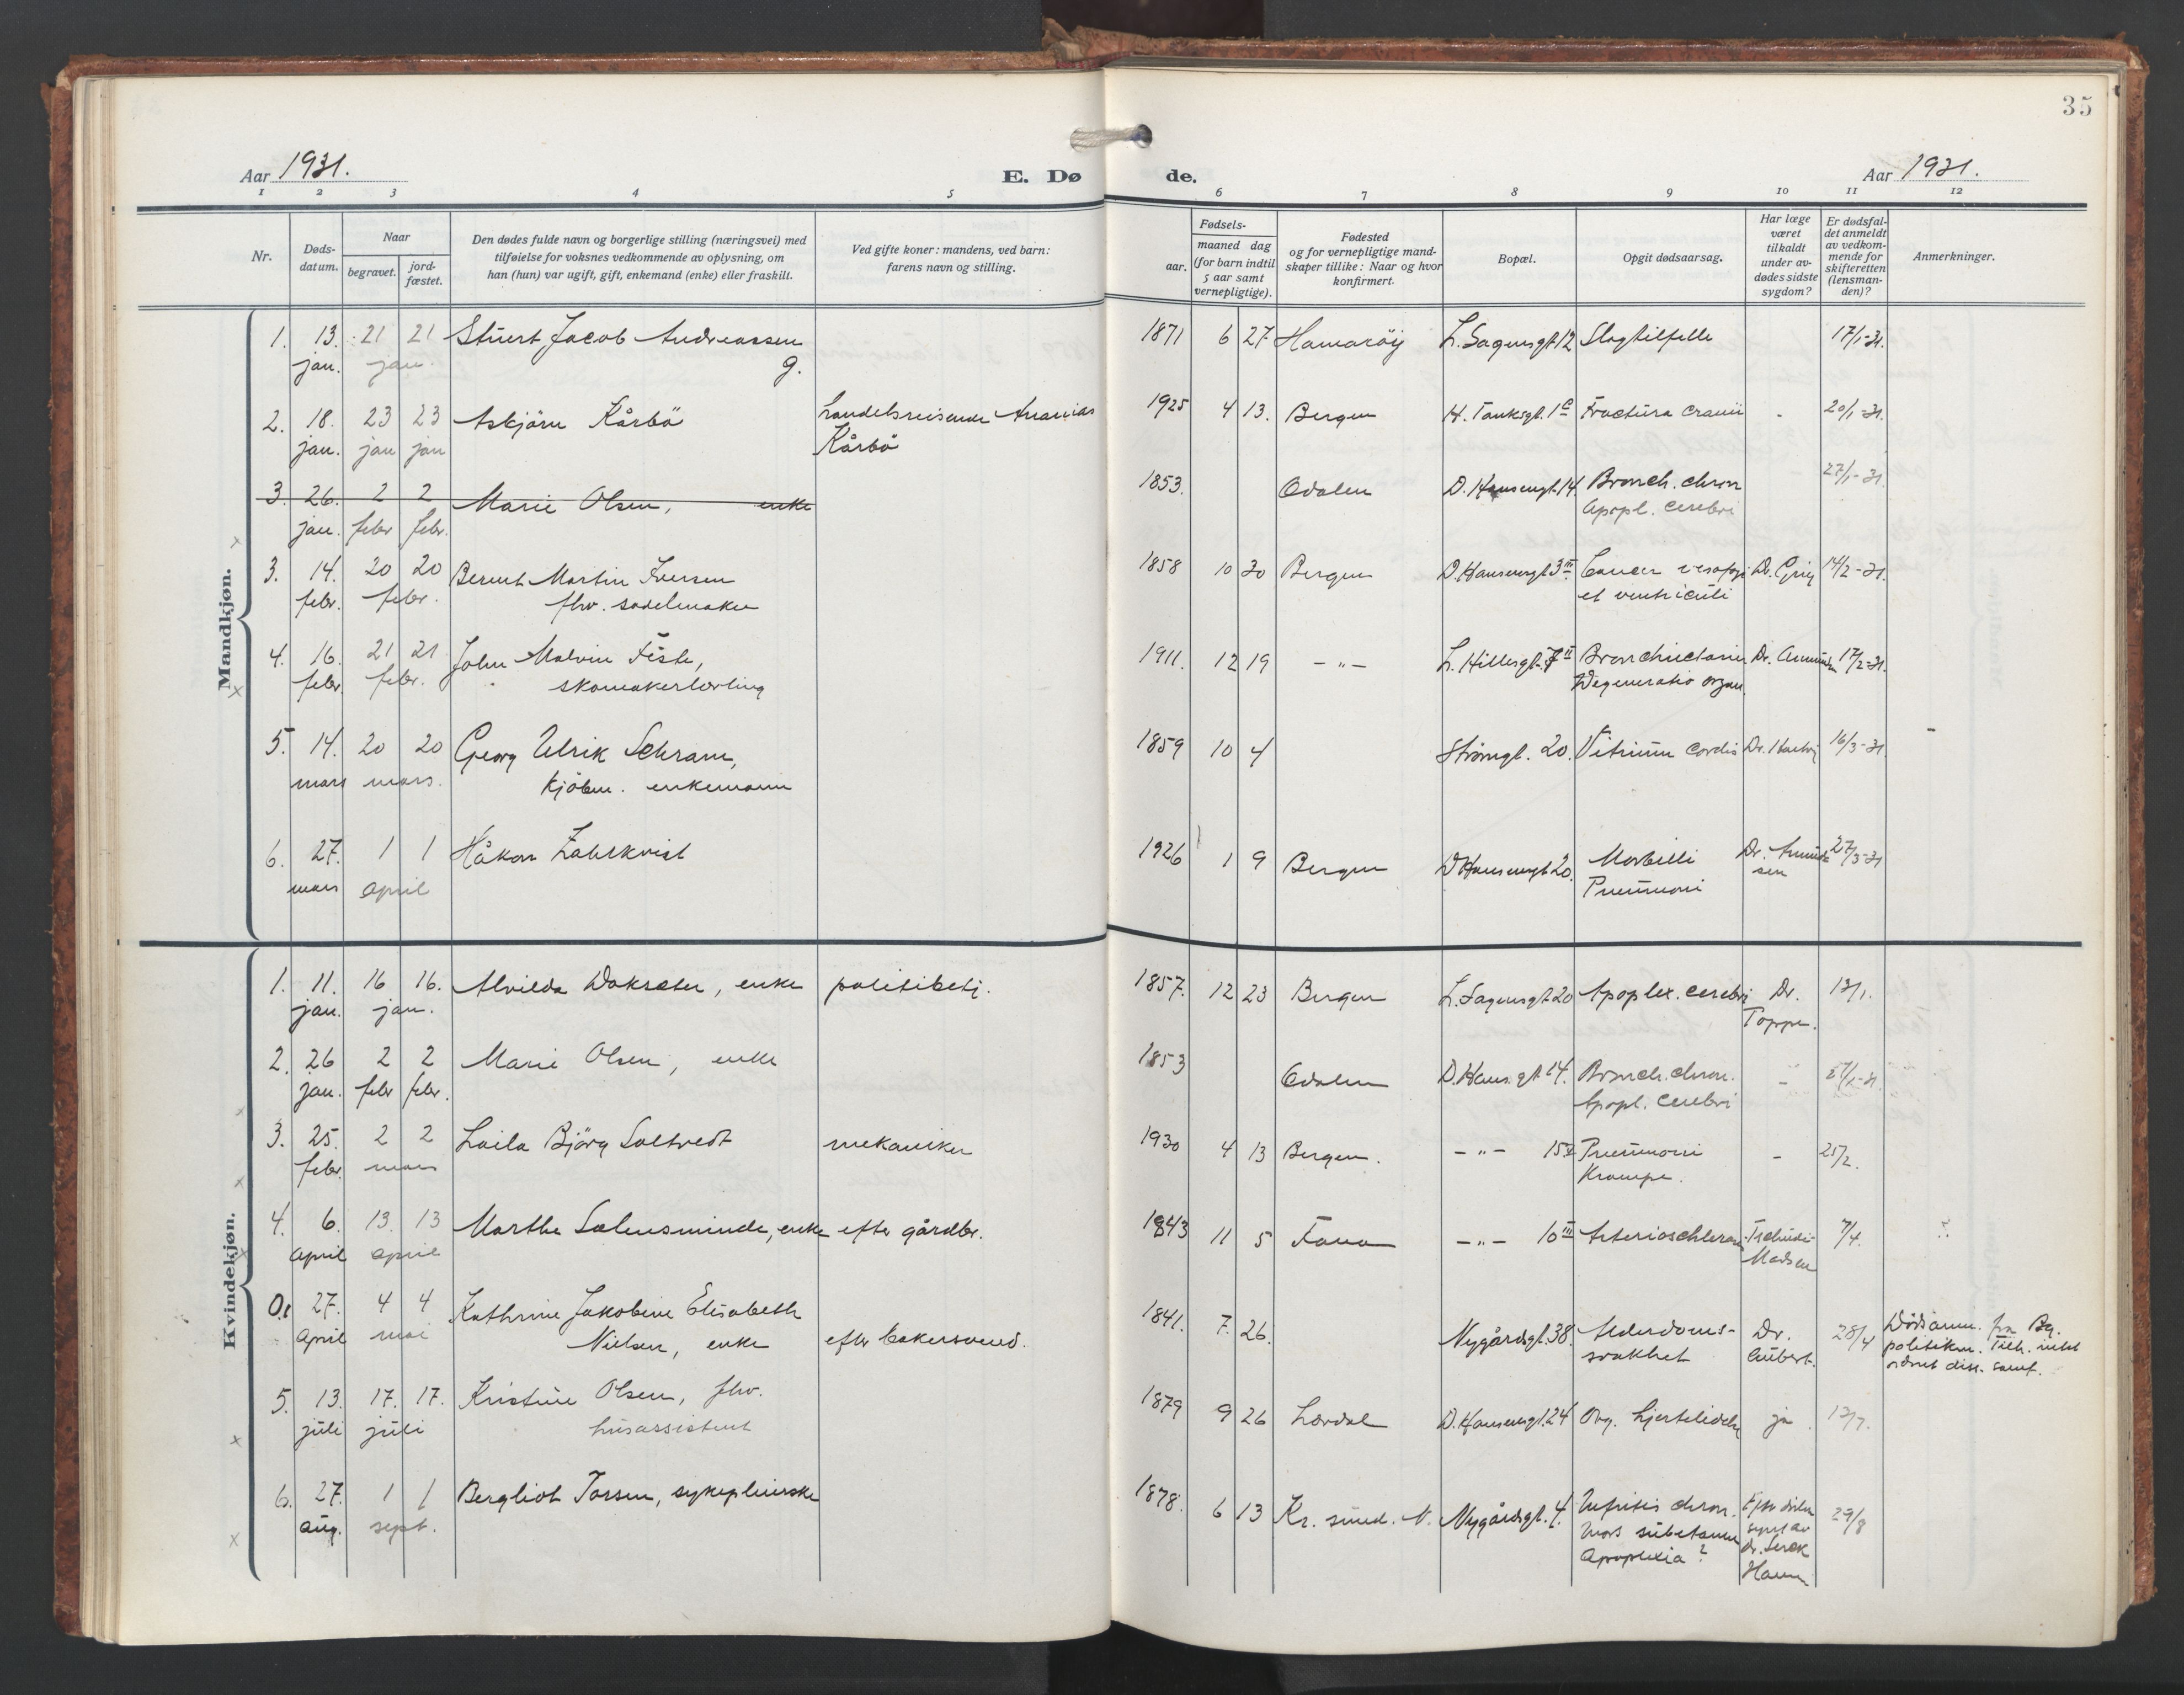 35
Aar 1931.
E. Dø de.
Aar 1931.
1 2 3 4 5 6 7 8 9 10 11 12
Nr.
Døds-
datum.
Naar
begravet.
jord-
fæstet.
Den dødes fulde navn og borgerlige stilling (næringsvei) med
tilføielse for voksnes vedkommende av oplysning, om
han (hun) var ugift, gift, enkemand (enke) eller fraskilt.
Ved gifte koner: mandens, ved barn:
farens navn og stilling.
Fødsels-
aar.
maaned dag
(for barn indtil
5 aar samt
vernepligtige).
Fødested
og for vernepligtige mand-
skaper tillike: Naar og hvor
konfirmert.
Bopæl.
Opgit dødsaarsag.
Har læge
været
tilkaldt
under av-
dødes sidste
sygdom?
Er dødsfal-
det anmeldt
av vedkom-
mende for
skifteretten
(lensman-
den)?
Anmerkninger.
Mandkjøn.
1. 13. 21 21 Jacob Andreassen 1871 6 27 Hamarøy L. Sagensgt 12 Slagtilfelle 17/1-31.
jan. jan. g.
2. 18. 23 23 Asbjørn Kårbö handelsreisende Ananias 1925 4 13. Bergen H. Tanksgt. 1c Fractura cranii - 20/1-31.
jan. jan jan Kårbö
3. 26. 2 2 Marie Olsen, enke 1853. Odalen D. Hansensgt. 14. Bronch. chron 27/1-31.
jan. febr febr. Apopl. cerebri
3. 14. 20 20 Bernt Martin Iversen 1858 10 30 Bergen D. Hansensgt 3 III Cancer Dr. Grieg 14/2-31.
febr. febr. fhv. sadelmaker et ventriculi
4. 16. 21 21 John Malvin 1911. 12 19 -"- L. Hillesgt. 7 II 17/2-31.
febr. febr. skomakerlærling Degeneratio organ.
5. 14. 20 20 Georg Ulrik Schram, 1859 10 4 Strømgt. 20. Vitium cordis 16/3-31 -
mars mars. kjöbm. enkemann
6. 27. 1 1 Håkon 1926 1 9 Bergen D Hansensgt 20. Morbilli 27/3-31
mars april Pneumoni
Kvindekjøn.
1. 11. 16 16. Alvilda enke politibetj. 1857. 12 23 Bergen L. Sagensgt 20 Apoplex. cerebri Dr. 13/1.
jan. jan. Toppe.
2. 26 2 2 Marie Olsen, enke 1853 Odalen D. Hans.gt 14. Bronch. chron. - 27/1-31.
jan. febr febr. Apopl. cerebri
3. 25. 2 2 Laila Björg Soltvedt mekaniker 1930 4 13 Bergen. -"- 15 Pneumoni - 25/2.
febr. mars Krampe.
4. 6. 13. 13 Marthe Salensminde, enke efter gårdbr. 1843 11 5 Fana -"- 10 III 7/4.
april april Madsen
27. 4 4 Kathrine Jakobine Elisabeth 1841. 7. 26. Nygårdsgt. 38. Alderdoms- Dr. 28/4
april mai Nielsen, enke efter bakersvend. svakhet
5. 13. 17. 17. Kristine Olsen, fhv. 1879 9 26 Lærdal D. Hansensgt. 24 Org. hjertelidelse ja 13/7.
juli juli husassistent
6. 27. 1 1 Bergliot sykepleierske 1878. 6 13 Kr. sund. N. Nygårdsgt. 4. Nefritis chron. 29/8
aug. sept. Mors
Apoplexia?